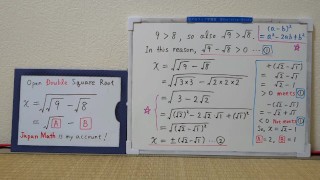 Open Double Square Root
x = √(√9 − √8)
= √A − B
Japan Math is my account!
9 > 8, so also √9 > √8.
In this reason, √9 − √8 > 0 … ①
(a−b)²
= a²−2ab+b²
x = √(√9 − √8)
= √(√(3×3) − √(2×2×2))
= √(3 − 2√2)
= √((√2)² − 2√2 √1 + (√1)²)
= √((√2 − √1)²)
x = ±(√2 − √1) … ②
+(√2−√1)
= √2−√1
= √2−1
> 0 meets ①
−(√2−√1)
= −√2+√1
< 0 Not meets ①
So, x = √2−1
A = 2, B = 1